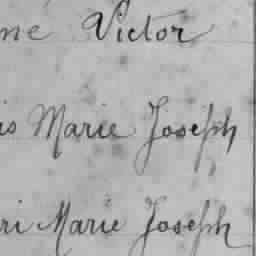 né Victor
is Marie Joseph
ri Marie Joseph